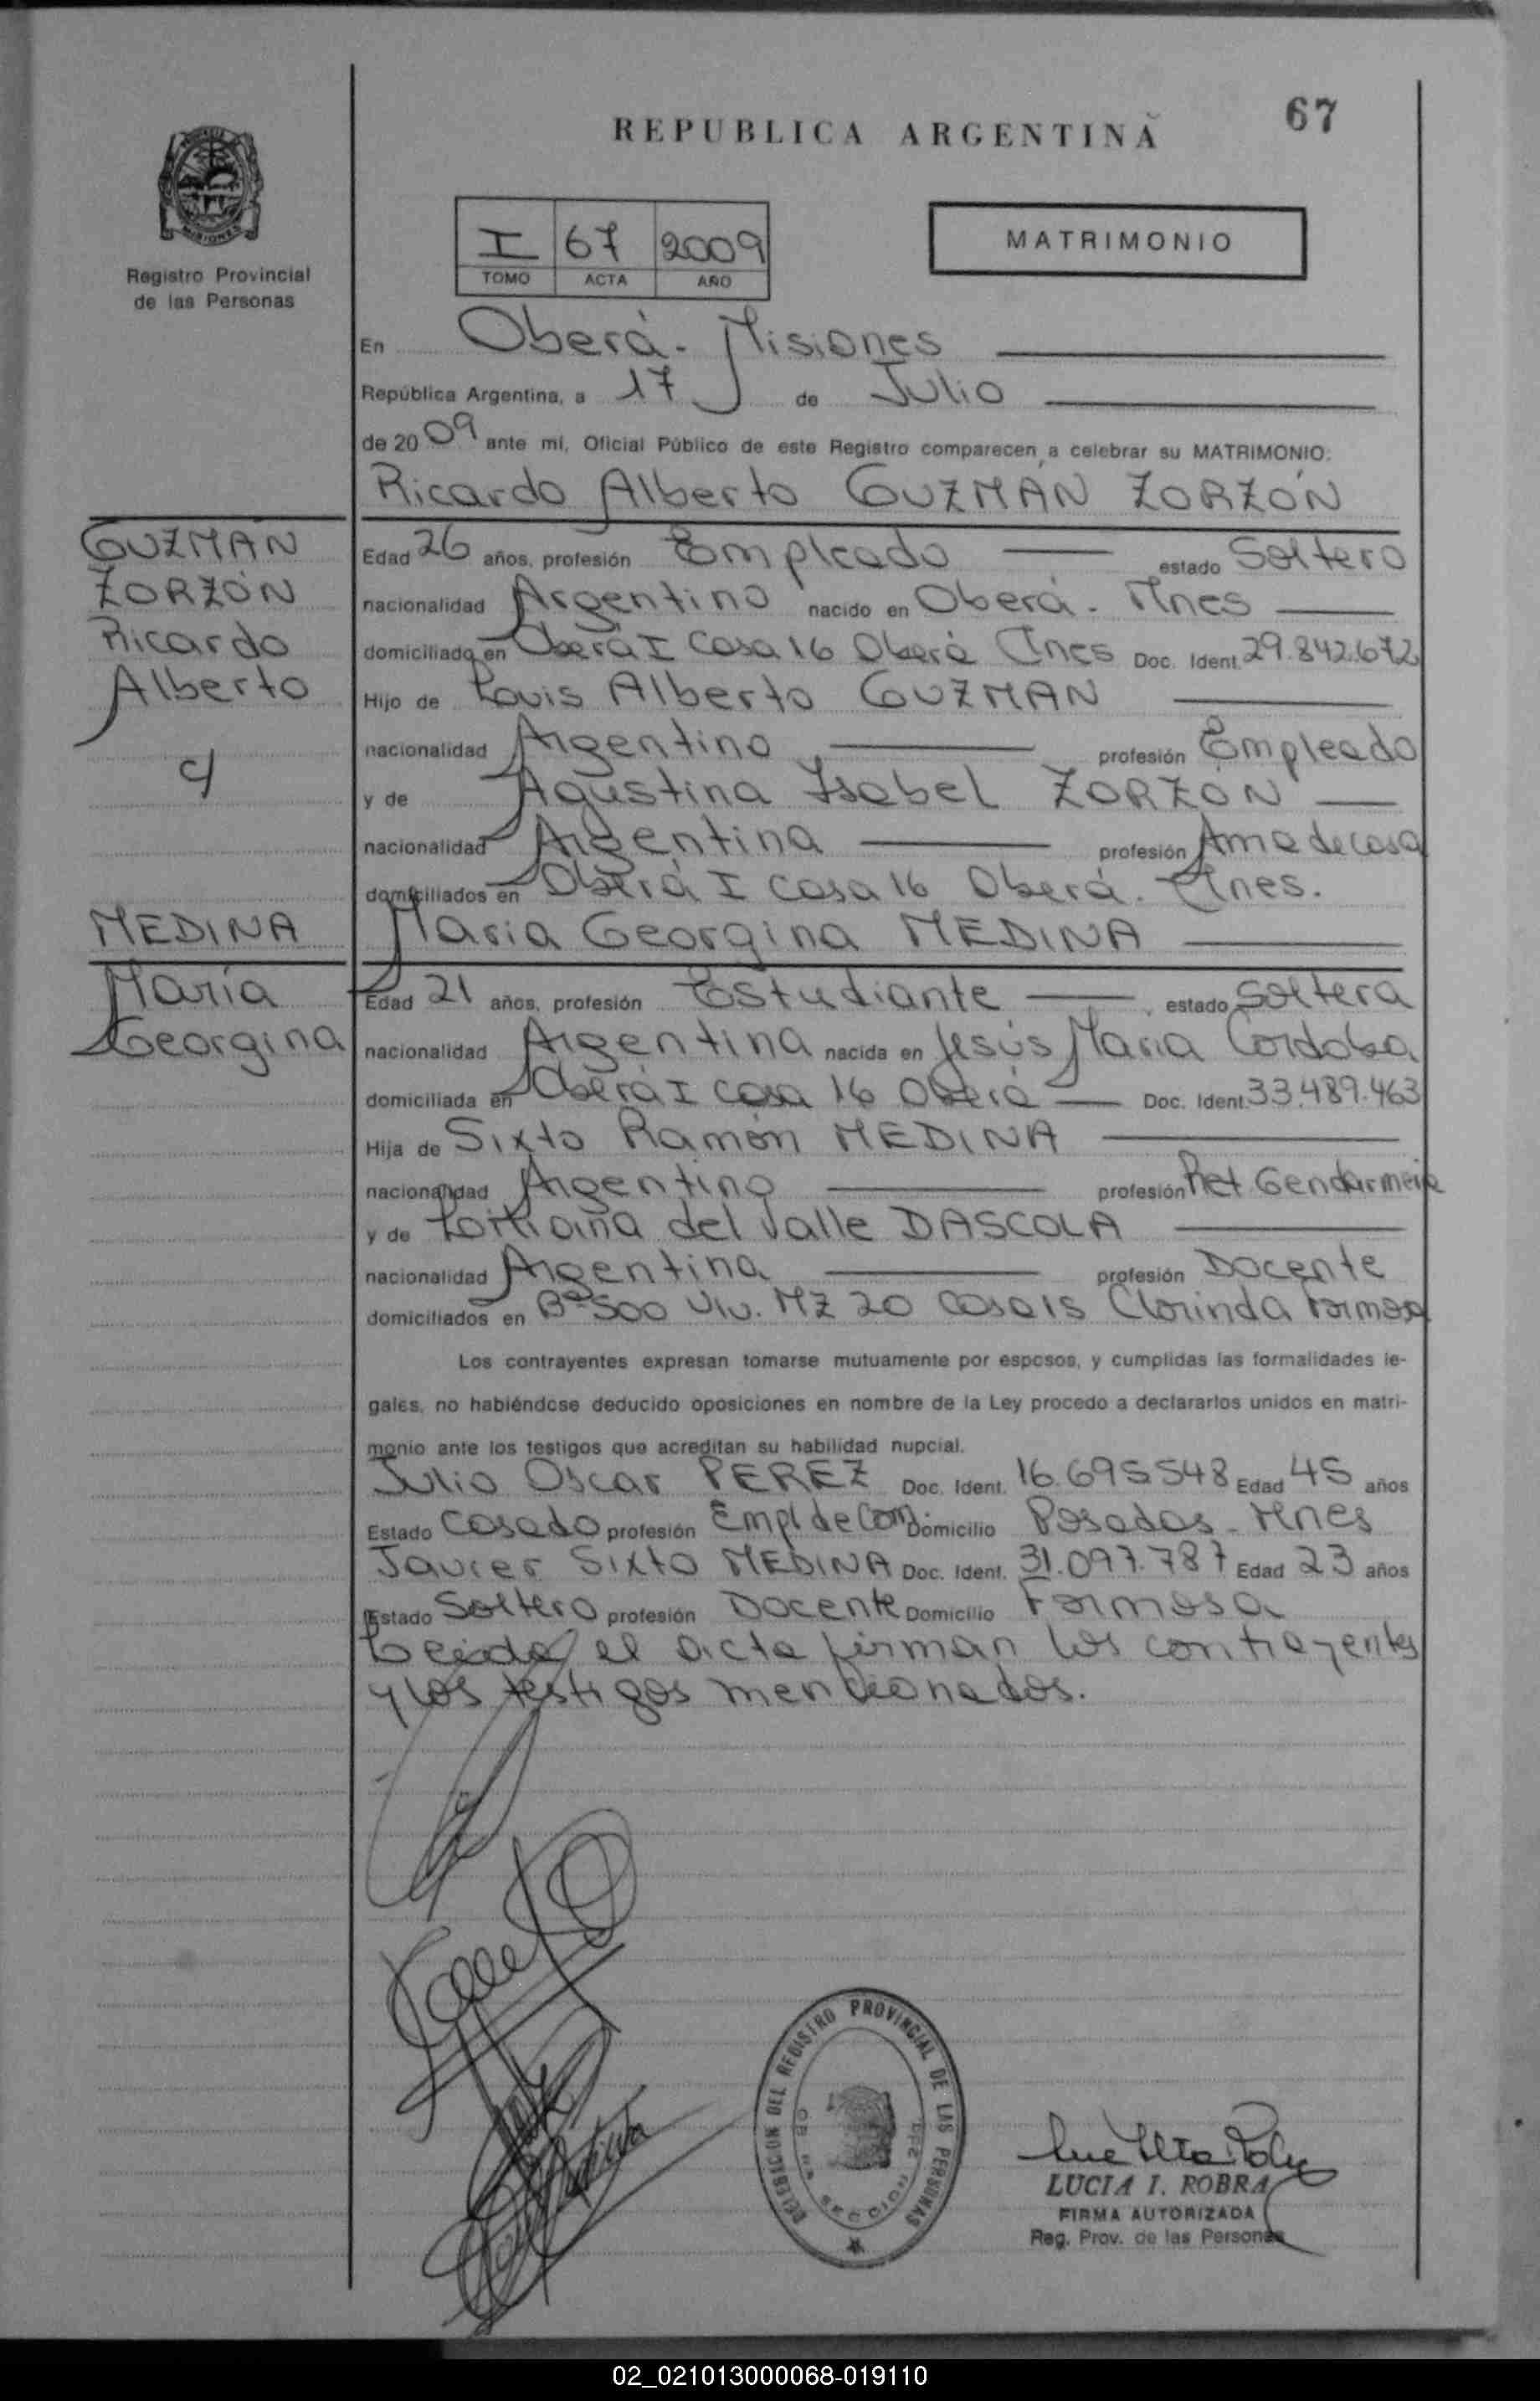 67
REPUBLICA ARGENTINA
MISIONES
Registro Provincial
de las Personas
I 67 2009
TOMO ACTA AÑO
MATRIMONIO
En Oberá - Misiones
República Argentina, a 17 de Julio
de 2009 ante mi, Oficial Público de este Registro comparecen a celebrar su MATRIMONIO:
Ricardo Alberto GUZMAN ZORZÓN
GUZMAN
ZORZÓN
Ricardo
Alberto
c/
Edad 26 años, profesión Empleado estado Soltero
nacionalidad Argentino nacido en Oberá - Mnes
domiciliado en Oberá I Casa 16 Oberá Mnes Doc. Ident. 29.842.672
Hijo de Louis Alberto GUZMAN
nacionalidad Argentino profesión Empleado
y de Agustina Isabel ZORZÓN
nacionalidad Argentina profesión Ama de casa
domiciliados en Oberá I Casa 16 Oberá - Mnes.
MEDINA
María
Georgina
Maria Georgina MEDINA
Edad 21 años, profesión Estudiante estado Soltera
nacionalidad Argentina nacida en Jesús Maria Cordoba
domiciliada en Oberá I casa 16 Oberá Doc. Ident. 33.489.463
Hija de Sixto Ramón MEDINA
nacionalidad Argentino profesión Ret. Gendarmeria
y de del Valle DASCOLA
nacionalidad Argentina profesión Docente
domiciliados en Bº 500 Viv. MZ 20 Casa 15 Clorinda Formosa
Los contrayentes expresan tomarse mutuamente por esposos, y cumplidas las formalidades le-
gales, no habiéndose deducido oposiciones en nombre de la Ley procedo a declararlos unidos en matri-
monio ante los testigos que acreditan su habilidad nupcial.
Julio Oscar PEREZ Doc. Ident. 16.695548 Edad 45 años
Estado Casado profesión Empl de Com. Domicilio Posadas - Mnes
Javier Sixto MEDINA Doc. Ident. 31.097.787 Edad 23 años
Estado Soltero profesión Docente Domicilio Formosa
Leida el acta firman los contrayentes
y los testigos mencionados.
DELEGACION DEL REGISTRO PROVINCIAL DE LAS PERSONAS
LUCIA I. ROBRA
FIRMA AUTORIZADA
Reg. Prov. de las Personas
02_021013000068-019110